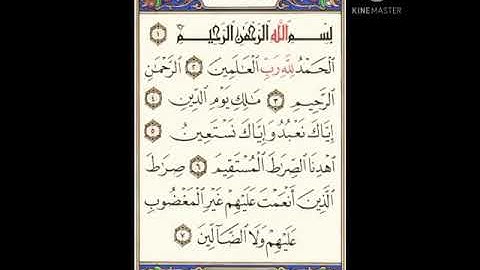 KINEMASTER
بِسْمِ ٱللَّهِ ٱلرَّحْمَٰنِ ٱلرَّحِيمِ ١
ٱلْحَمْدُ لِلَّهِ رَبِّ ٱلْعَٰلَمِينَ ٢ ٱلرَّحْمَٰنِ
ٱلرَّحِيمِ ٣ مَٰلِكِ يَوْمِ ٱلدِّينِ ٤
إِيَّاكَ نَعْبُدُ وَإِيَّاكَ نَسْتَعِينُ ٥
ٱهْدِنَا ٱلصِّرَٰطَ ٱلْمُسْتَقِيمَ ٦ صِرَٰطَ
ٱلَّذِينَ أَنْعَمْتَ عَلَيْهِمْ غَيْرِ ٱلْمَغْضُوبِ
عَلَيْهِمْ وَلَا ٱلضَّآلِّينَ ٧